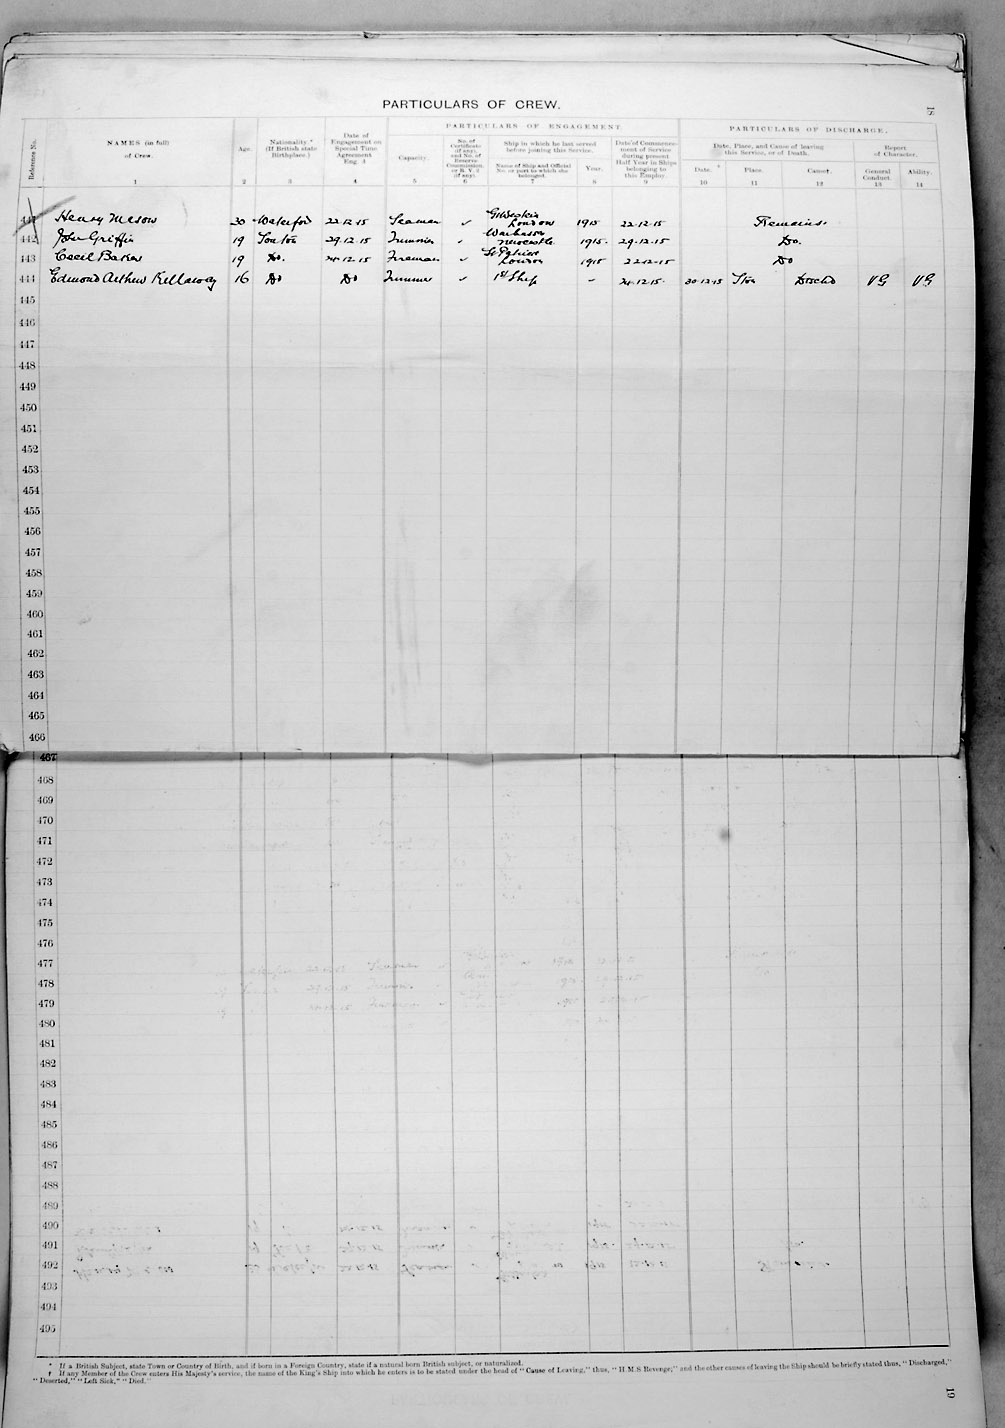 18
PARTICULARS OF CREW.
PARTICULARS OF ENGAGEMENT
PARTICULARS OF DISCHARGE.
Reference No.
NAMES (in full)
of Crew.
Age.
Nationality.*
(If British state
Birthplace.)
Date of
Engagement on
Special Time
Agreement
Eng. 3
Capacity.
No. of
Certificate
(if any),
and No. of
Reserve
Commission
or R.V. 2
(if any).
Ship in which he last served
before joining this Service.
Name of Ship and Official
No. or port to which she
belonged.
Year.
Date of Commence-
ment of Service
during present
Half Year in Ships
belonging to
this Employ.
Date, Place, and Cause of leaving
this Service, or of Death.
Date.
Place.
Cause†.
Report
of Character.
General
Conduct.
Ability.
1 2 3 4 5 6 7 8 9 10 11 12 13 14
441 Henry Mason 30 Waterford 22.12.15 Seaman London 1915 22.12.15 Remains.
442 John Griffin 19 Soton 29.12.15 Trimmer Newcastle 1915. 29.12.15 Do.
443 Cecil Baker 19 Do. 24.12.15 Fireman St Patrick London 1915 22.12.15 Do
444 Edmond Arthur Kellaway 16 Do Do Trimmer 1st Ship – 24.12.15. 30.12.15 Ston Discd VG VG
445
446
447
448
449
450
451
452
453
454
455
456
457
458
459
460
461
462
463
464
465
466
467
468
469
470
471
472
473
474
475
476
477
478
479
480
481
482
483
484
485
486
487
488
489
490
491
492
493
494
495
* If a British Subject, state Town or Country of Birth, and if born in a Foreign Country, state if a natural born British subject, or naturalized.
† If any Member of the Crew enters His Majesty's service, the name of the King's Ship into which he enters is to be stated under the head of "Cause of Leaving," thus, "H.M.S Revenge;" and the other causes of leaving the Ship should be briefly stated thus, "Discharged,"
"Deserted," "Left Sick," "Died."
19